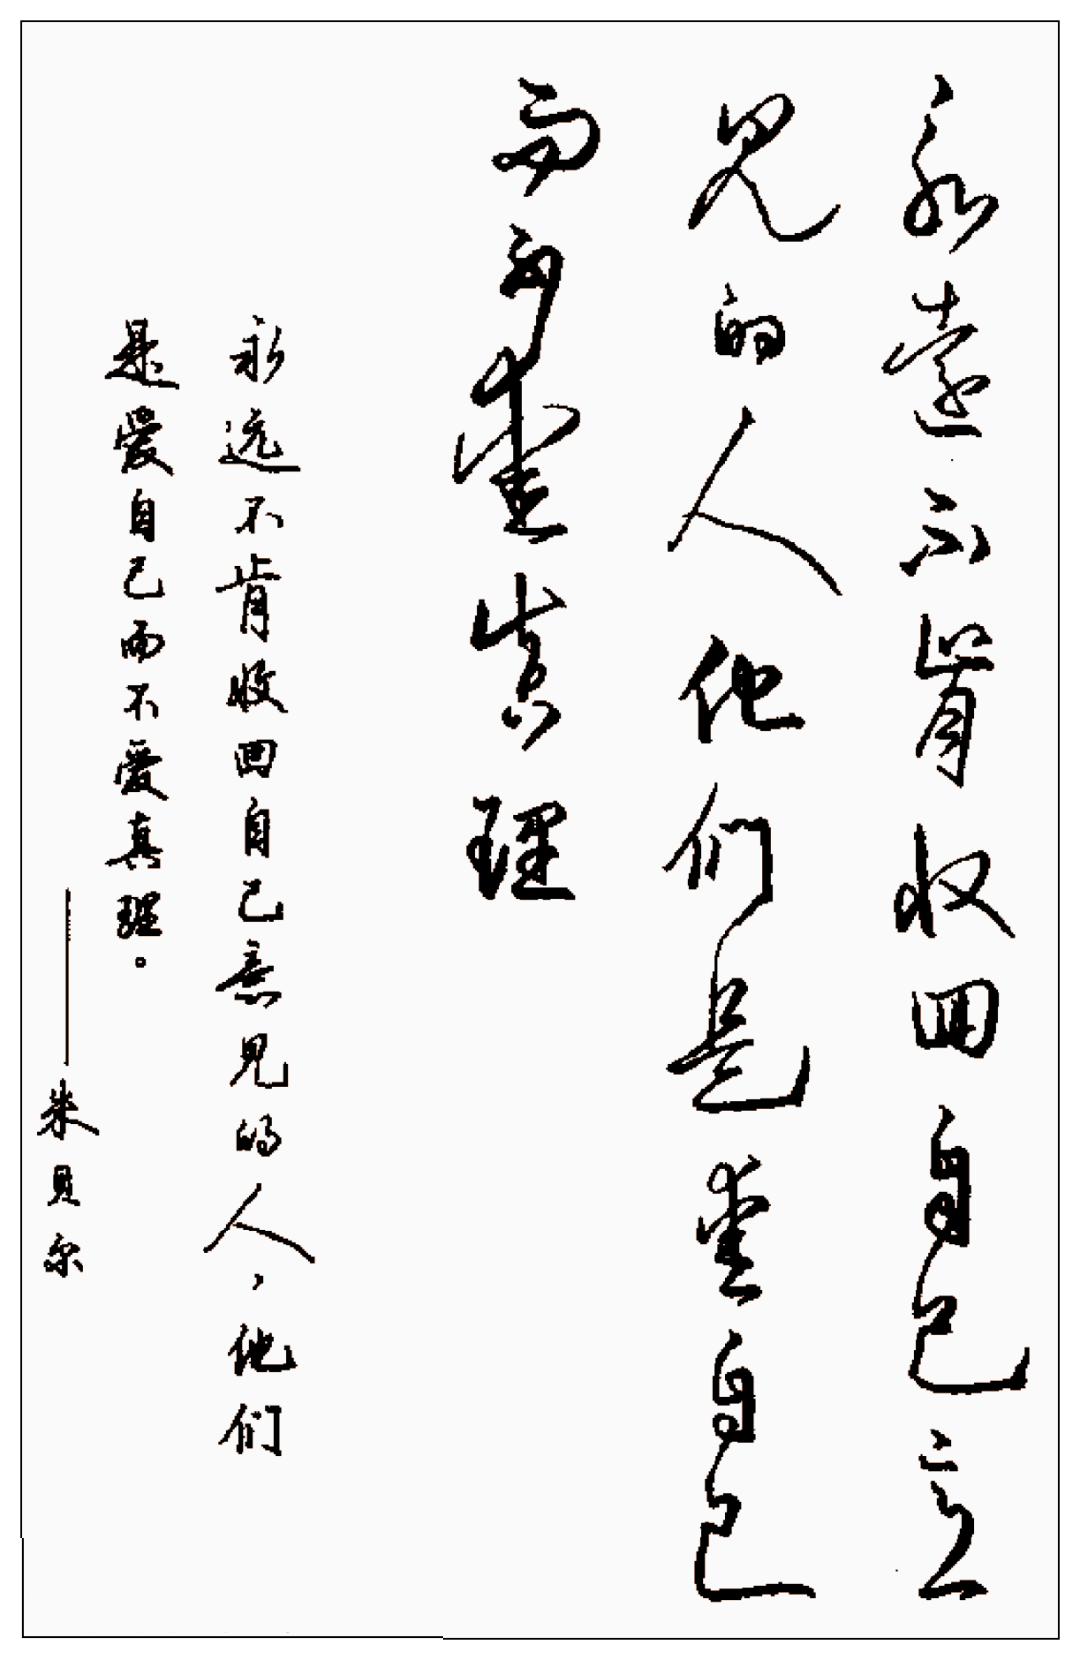 永远不肯收回自己意
见的人他们是爱自己
而不爱真理
永远不肯收回自己意见的人，他们
是爱自己而不爱真理。
——朱贝尔